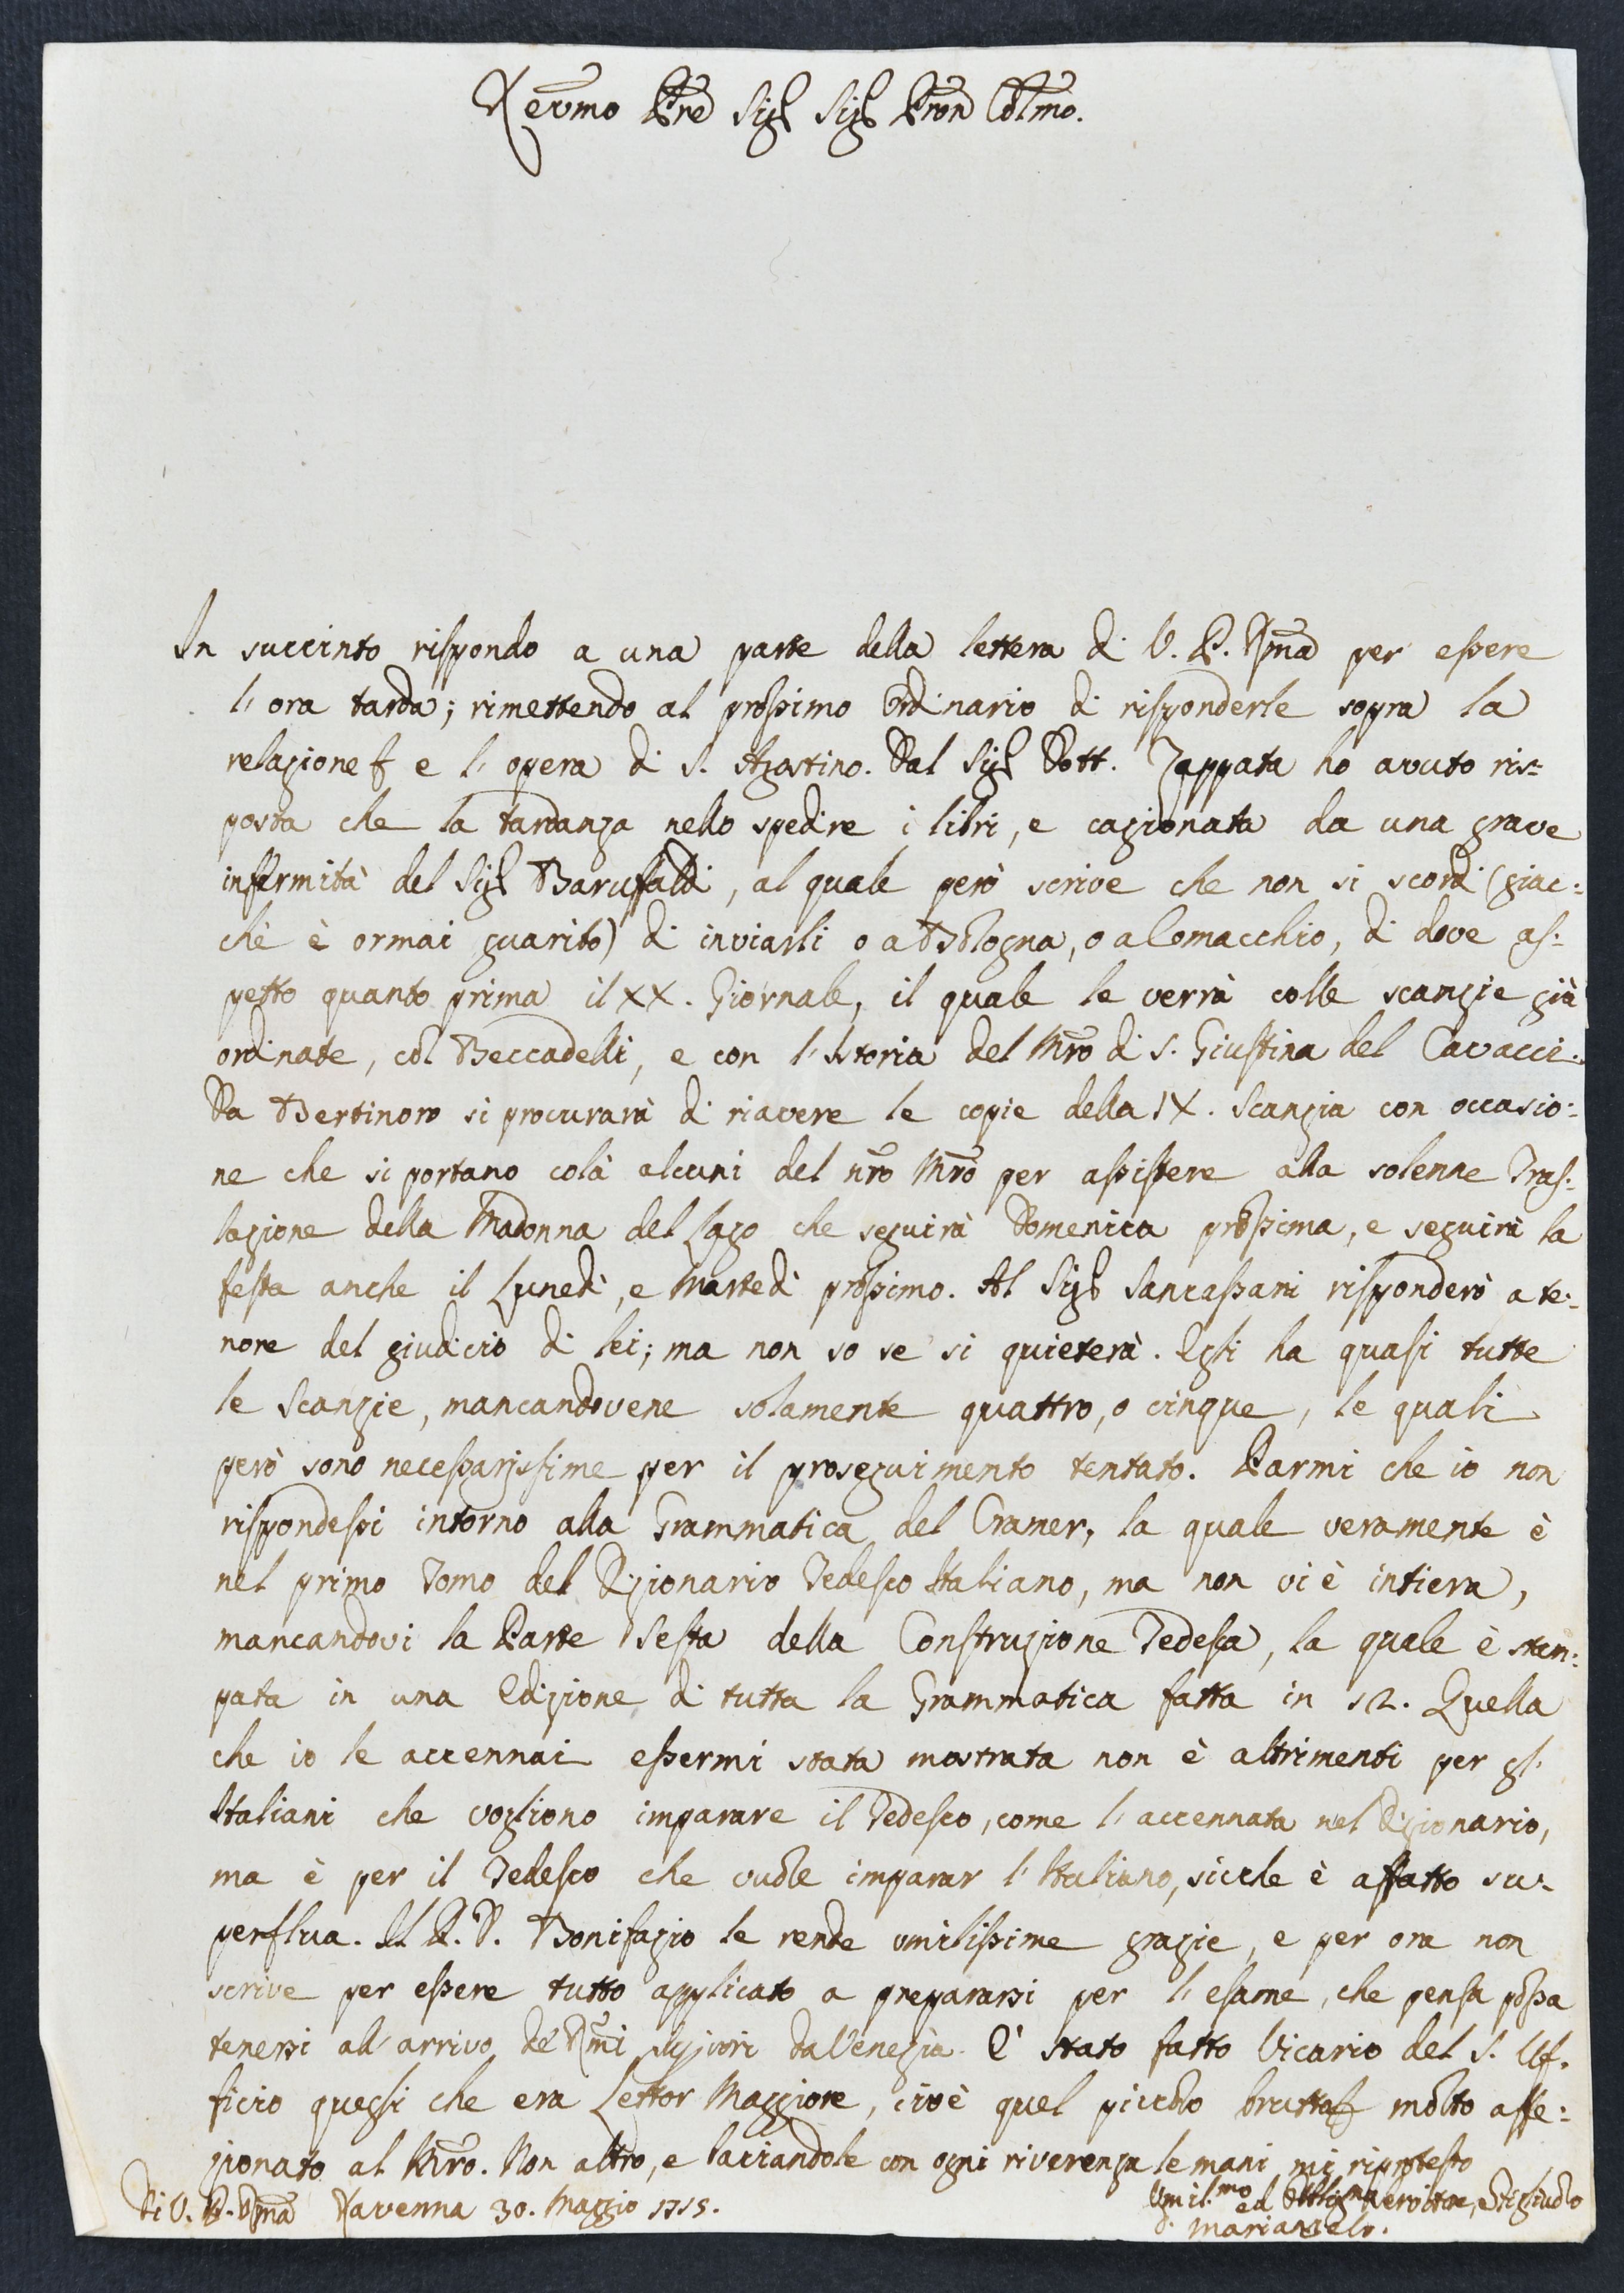 Reṽmo Pre Sig.r Sig.r Pron Colmo.
In succinto rispondo a una parte della lettera di V. P. Rma per essere
l'ora tarda; rimettendo al prossimo Ordinario di risponderle sopra la
relazione e l'opera di S. Agostino. Dal Sig.r Dott. Zappata ho avuto ris=
posta che la tardanza nello spedire i libri, e cagionata da una grave
infermità del Sig.r Baruffaldi, al quale però scrive che non si scordi (giac:
chè è ormai guarito) di inviarli o a Bologna, o a Comacchio, di dove as:
petto quanto prima il XX. Giornale, il quale le verrà colle scanzie già
ordinate, col Beccadelli, e con l'Istoria del Mro di S. Giustina del Cavacci.
Da Bertinoro si procurarà di riavere le copie della IX. Scanzia con occasio:
ne che si portano colà alcuni del nro Mro per assistere alla solenne Tras:
lazione della Madonna del Lago che seguirà Domenica prossima, e seguirà la
festa anche il Lunedì, e Martedì prossimo. Al Sig.r Sancassani risponderò a te:
nore del giudicio di lei; ma non so se si quieterà. Egli ha quasi tutte
le Scanzie, mancandovene solamente quattro, o cinque, le quali
però sono necessarissime per il proseguimento tentato. Parmi che io non
rispondessi intorno alla Grammatica del Cramer, la quale veramente è
nel primo Tomo del Dizionario Tedesco Italiano, ma non vi è intiera,
mancandovi la Parte Sesta della Construzione Tedesca, la quale è stam:
pata in una Edizione di tutta la Grammatica fatta in 12. Quella
che io le accennai essermi stata mostrata non è altrimenti per gl'
Italiani che vogliono imparare il Tedesco, come l'accennata nel Dizionario,
ma è per il Tedesco che vuole imparar l'Italiano, sicche è affatto su:
perflua. Il P. D. Bonifazio le rende umilissime grazie, e per ora non
scrive per essere tutto applicato a prepararsi per l'esame, che pensa possa
tenersi all'arrivo de' Rmi da Venezia. E' stato fatto Vicario del S. Uf:
ficio quegli che era Lettor Maggiore, cioè quel piccolo molto affe:
zionato al Mro. Non altro, e baciandole con ogni riverenza le mani mi riprotesto
Di V. P. Rma Ravenna 30. Maggio 1715.
Umil.mo ed Obblig.mo Servitore, e Figliuolo
D. Mariangelo.